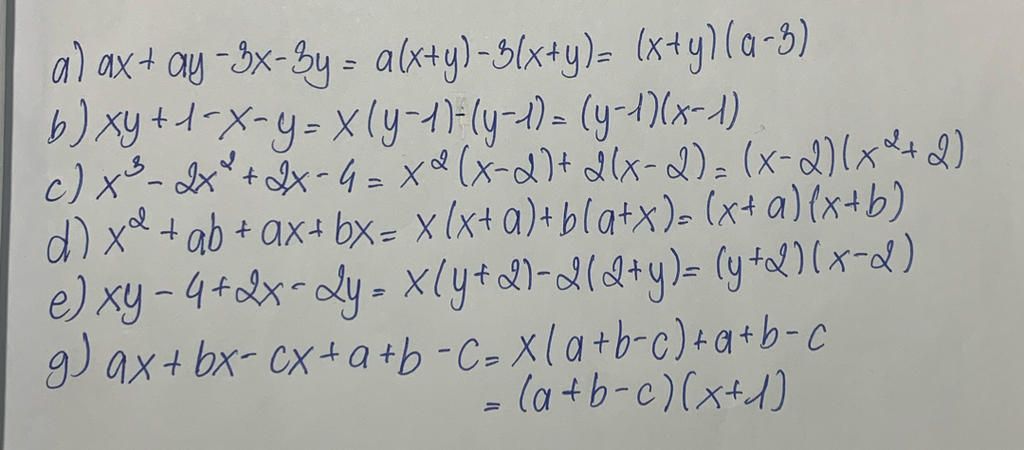 a) ax + ay - 3x - 3y = a(x+y) - 3(x+y) = (x+y)(a-3)
b) xy + 1 - x - y = x(y-1) - (y-1) = (y-1)(x-1)
c) x³ - 2x² + 2x - 4 = x²(x-2) + 2(x-2) = (x-2)(x²+2)
d) x² + ab + ax + bx = x(x+a) + b(a+x) = (x+a)(x+b)
e) xy - 4 + 2x - 2y = x(y+2) - 2(2+y) = (y+2)(x-2)
g) ax + bx - cx + a + b - c = x(a+b-c) + a + b - c
= (a+b-c)(x+1)